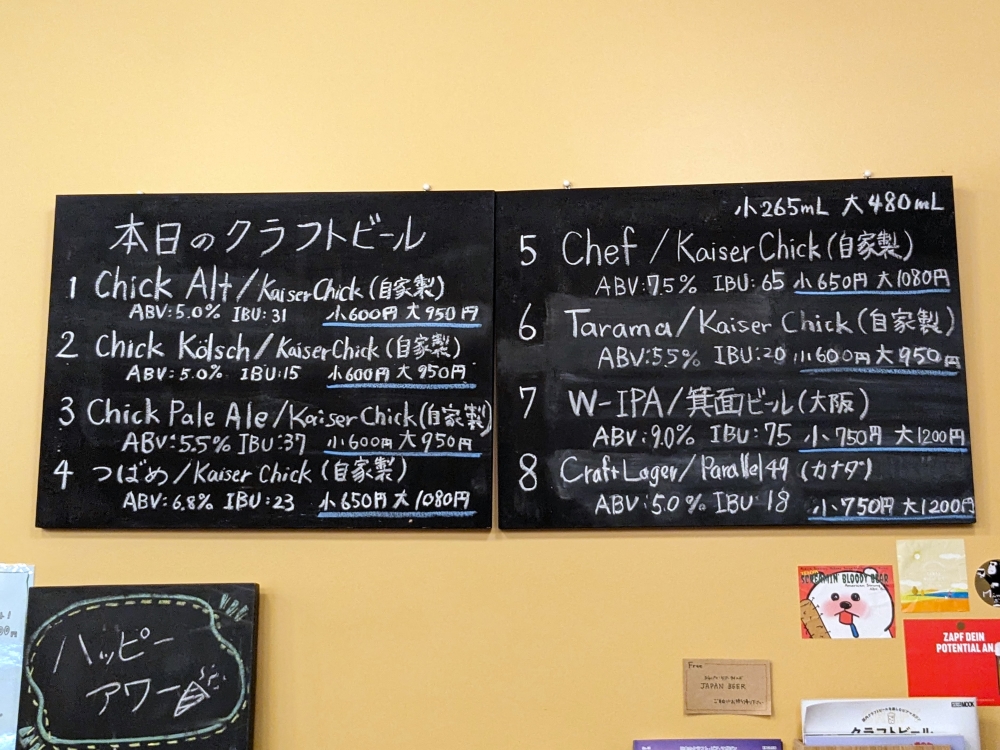 本日のクラフトビール
1 Chick Alt/Kaiser Chick (自家製)
ABV:5.0% IBU:31 小600円 大950円
2 Chick Kölsch/Kaiser Chick (自家製)
ABV:5.0% IBU:15 小600円 大950円
3 Chick Pale Ale/Kaiser Chick(自家製)
ABV:5.5% IBU:37 小600円 大950円
4 つばめ/Kaiser Chick (自家製)
ABV:6.8% IBU:23 小650円 大1080円
小265mL 大480mL
5 Chef/Kaiser Chick(自家製)
ABV:7.5% IBU:65 小650円 大1080円
6 Tarama/Kaiser Chick(自家製)
ABV:5.5% IBU:20 小600円 大950円
7 W-IPA/箕面ビール(大阪)
ABV:9.0% IBU:75 小750円 大1200円
8 Craft Lager/Parallel 49 (カナダ)
ABV:5.0% IBU 18 小750円 大1200円
ハッピー
アワー
SCREAMIN BLOODY BEAR
ZAPF DEIN
POTENTIAL AN
Free
JAPAN BEER
MOOK
クラフトビール